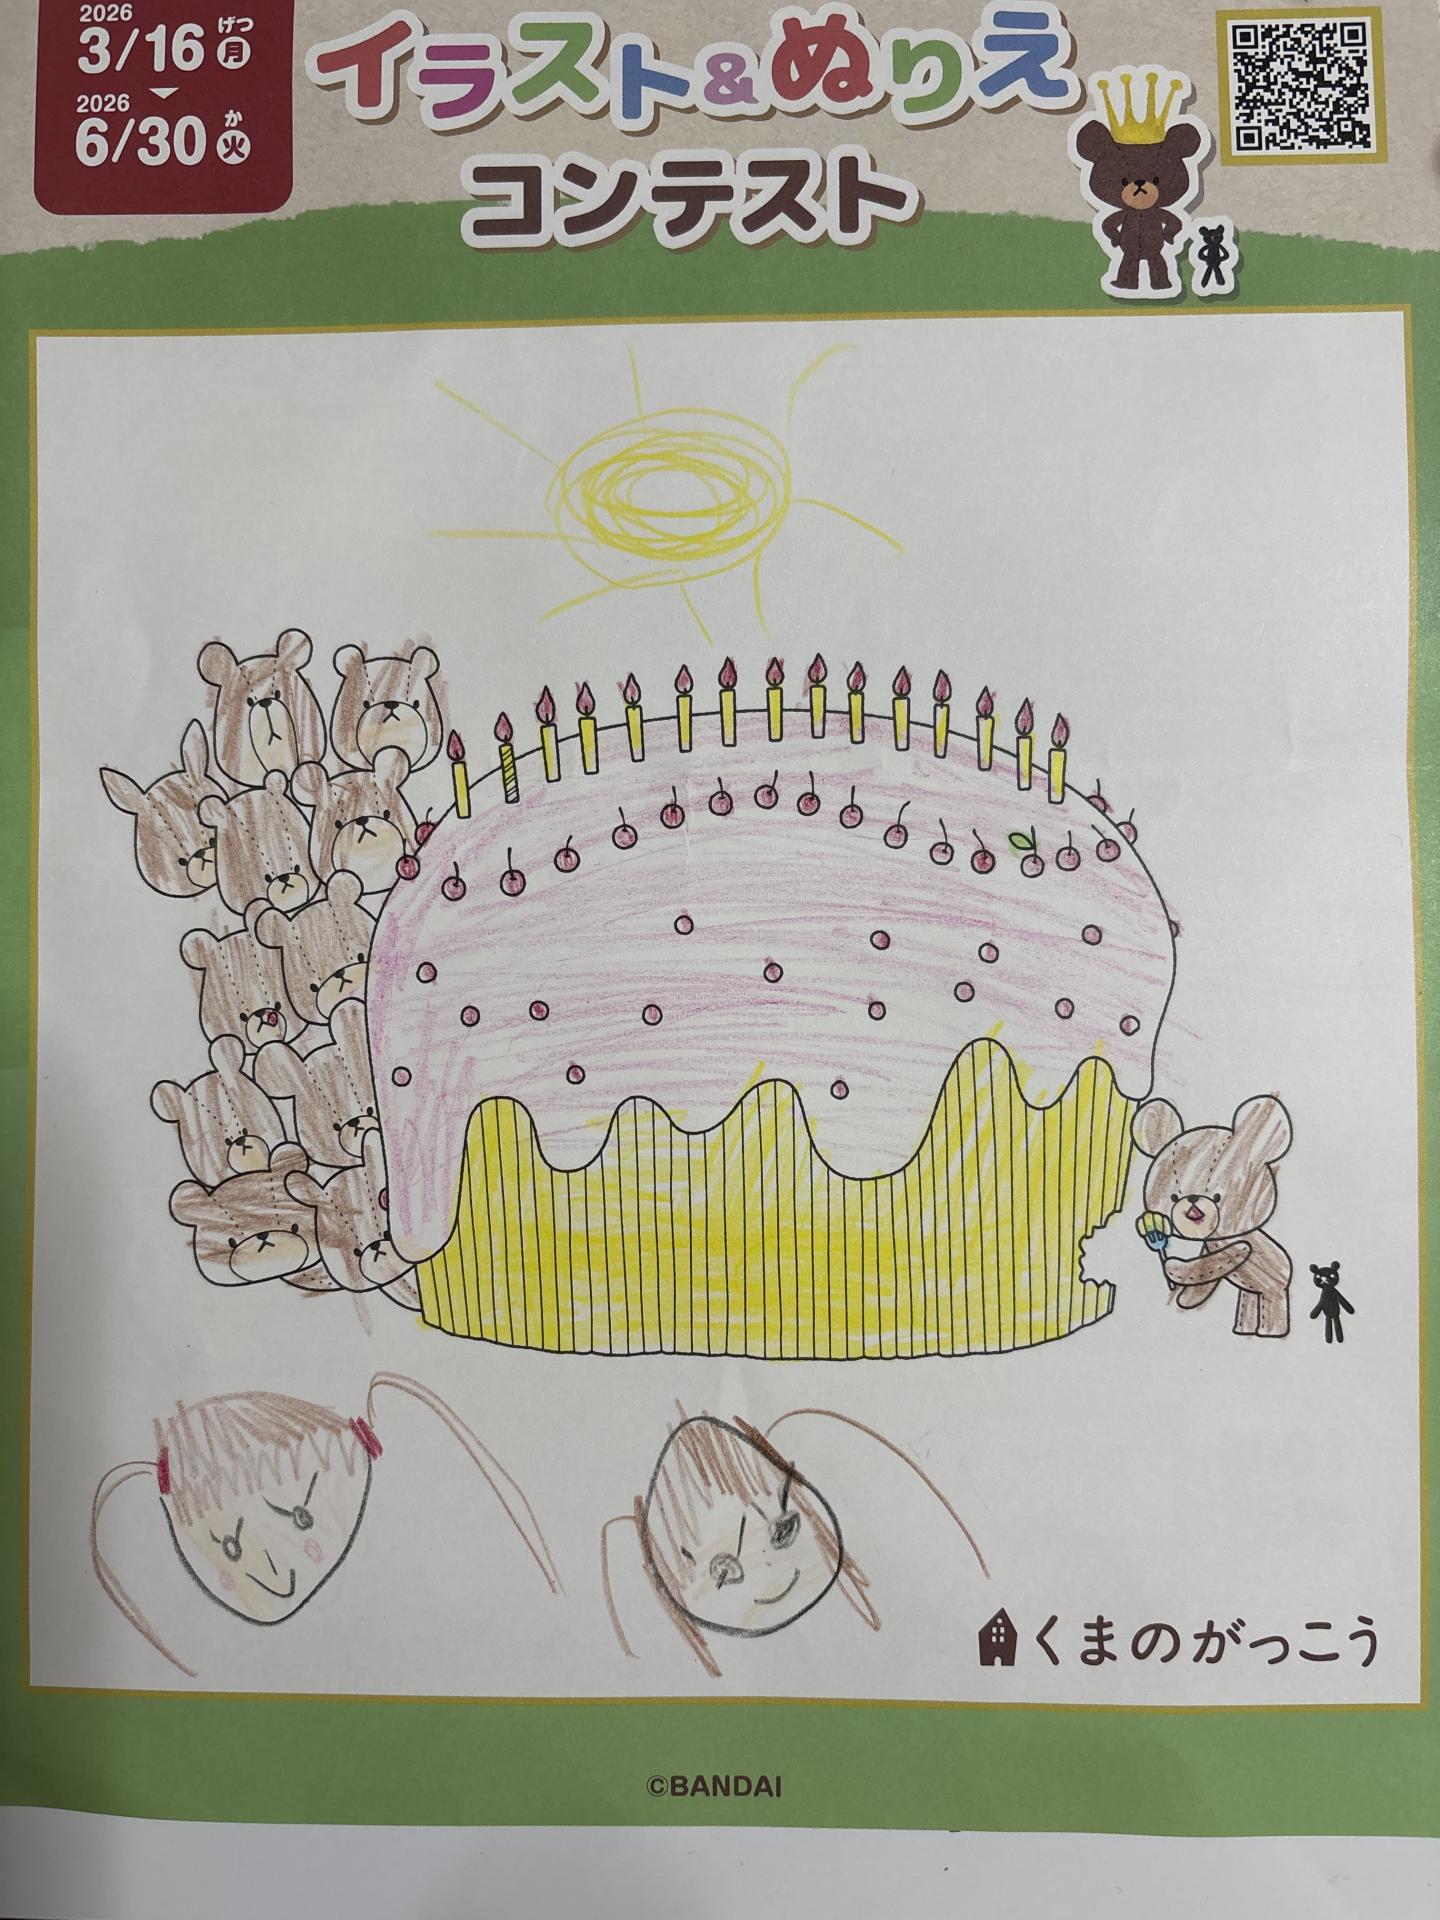 2026
3/16 げつ 月
2026
6/30 か 火
イラスト&ぬりえ
コンテスト
くまのがっこう
©BANDAI